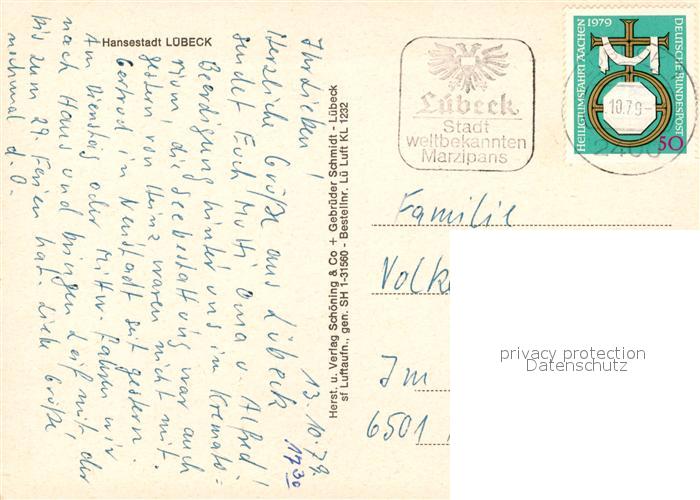 Hansestadt LÜBECK
13.10.79
17 30
Ihr Lieben!
Herzliche Grüße aus Lübeck
sendet Euch Mutti Oma u. Alfred!
Beerdigung hinter uns im Kremato=
rium, die Seebestattung war auch
gestern von Heinz waren nicht mit.
Gertrud in Neustadt seit gestern.
Am Dienstag oder Mittw. fahren wir
nach Haus und bringen Leif mit, der
bis zum 29. Ferien hat. Liebe Grüße,
nochmal d. O.
Herst. u. Verlag Schöning & Co + Gebrüder Schmidt - Lübeck
sf Luftaufn., gen. SH 1-31560 - Bestellnr. Lü Luft KL 1232
Lübeck
Stadt
weltbekannten
Marzipans
HEILIGTUMSFAHRT AACHEN 1979
DEUTSCHE BUNDESPOST
50
10.79-
2400
Familie
Volk
Im
6501
privacy protection
Datenschutz